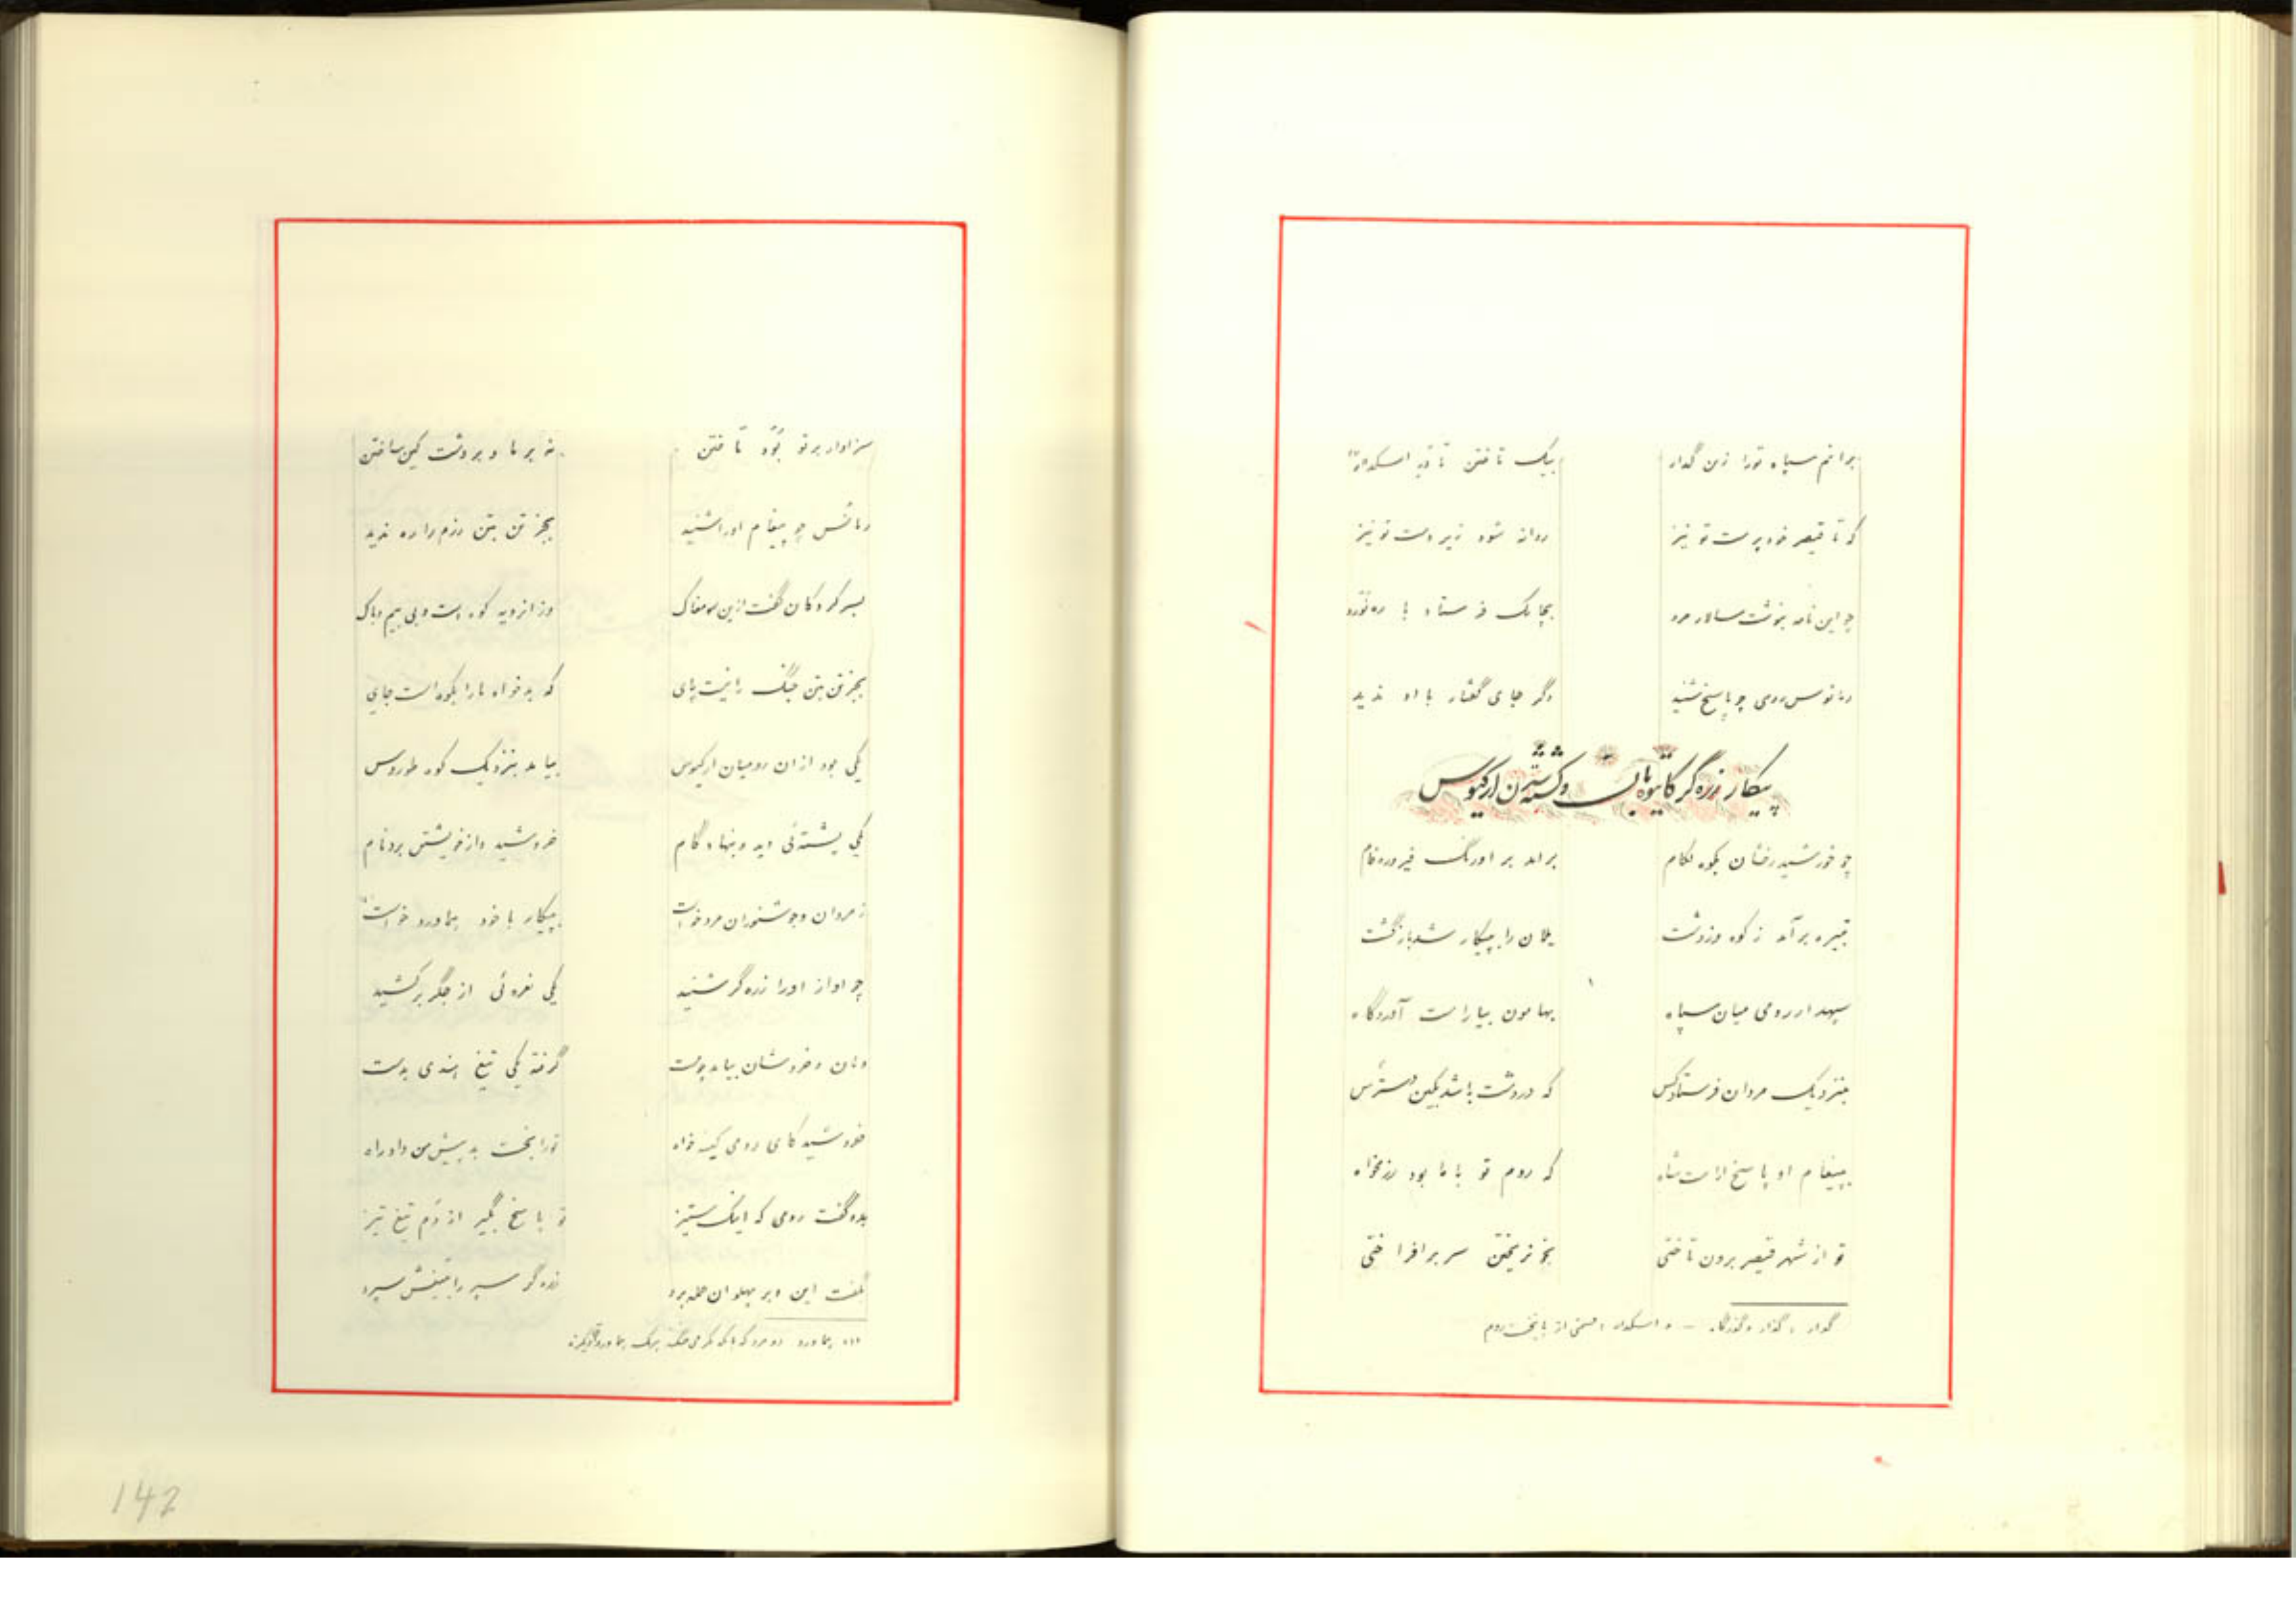 برانم سپاه تورا زین گدار
بیک تاختن تا در اسکدار
که تا قیصر خودپرست تو نیز
روانه شود زیر دست تو نیز
چو این نامه بنوشت سالار مرد
بچابک فرستاد با ره نورد
رمانوس رومی چو پاسخ شنید
دگر جای گفتار با او ندید
پیکار زره گر کاتیوه بابس و کشته شدن ارکیوس
چو خورشید رخشان بکوه لکام
برآمد بر اورنگ فیروزه فام
تبیره برآمد ز کوه و ز دشت
یلان را به پیکار شد بازگشت
سپهدار رومی میان سپاه
بهامون بیاراست آوردگاه
بنزدیک مردان فرستاد کس
که در دشت باشد بکین دسترس
به پیغام او پاسخ آراست شاه
که روم تو با ما بود رزمخواه
تو از شهر قیصر برون تاختی
بخونریختن سر برافراختی
گدار، گذار و گذرگاه — و اسکدار، از پایتخت روم
سزاوار بر تو بود تاختن
نه بر ما و بر دشت کین ساختن
رمانس چو پیغام او را شنید
بجز تن بتن رزم را ره ندید
بسرکردگان گفت ازین سو مغاک
وز انرویه کوه است و بی بیم و باک
بجز تن بتن جنگ را نیست پای
که بدخواه ما را بکوه است جای
یکی بود ازان رومیان ارکیوس
بیامد بنزدیک کوه طوروس
یکی پشته‌ئی دید و بنهاد گام
خروشید و از خویشتن برد نام
ز مردان و جوشنوران مرد خواست
به پیکار با خود هماورد خواست
چو آواز او را زره گر شنید
یکی نعره‌ئی از جگر برکشید
دمان و خروشان بیامد چو مست
گرفته یکی تیغ هندی بدست
خروشید کای رومی کینه خواه
تو را بخت بد پیش من داد راه
بدو گفت رومی که اینک ستیز
تو پاسخ بگیر از دم تیغ تیز
بگفت این و بر پهلوان حمله برد
زره گر سپر را به تیغش سپرد
(۱) هماورد دو مرد که با یکدیگر می جنگند هریک هماورد دیگرند
142